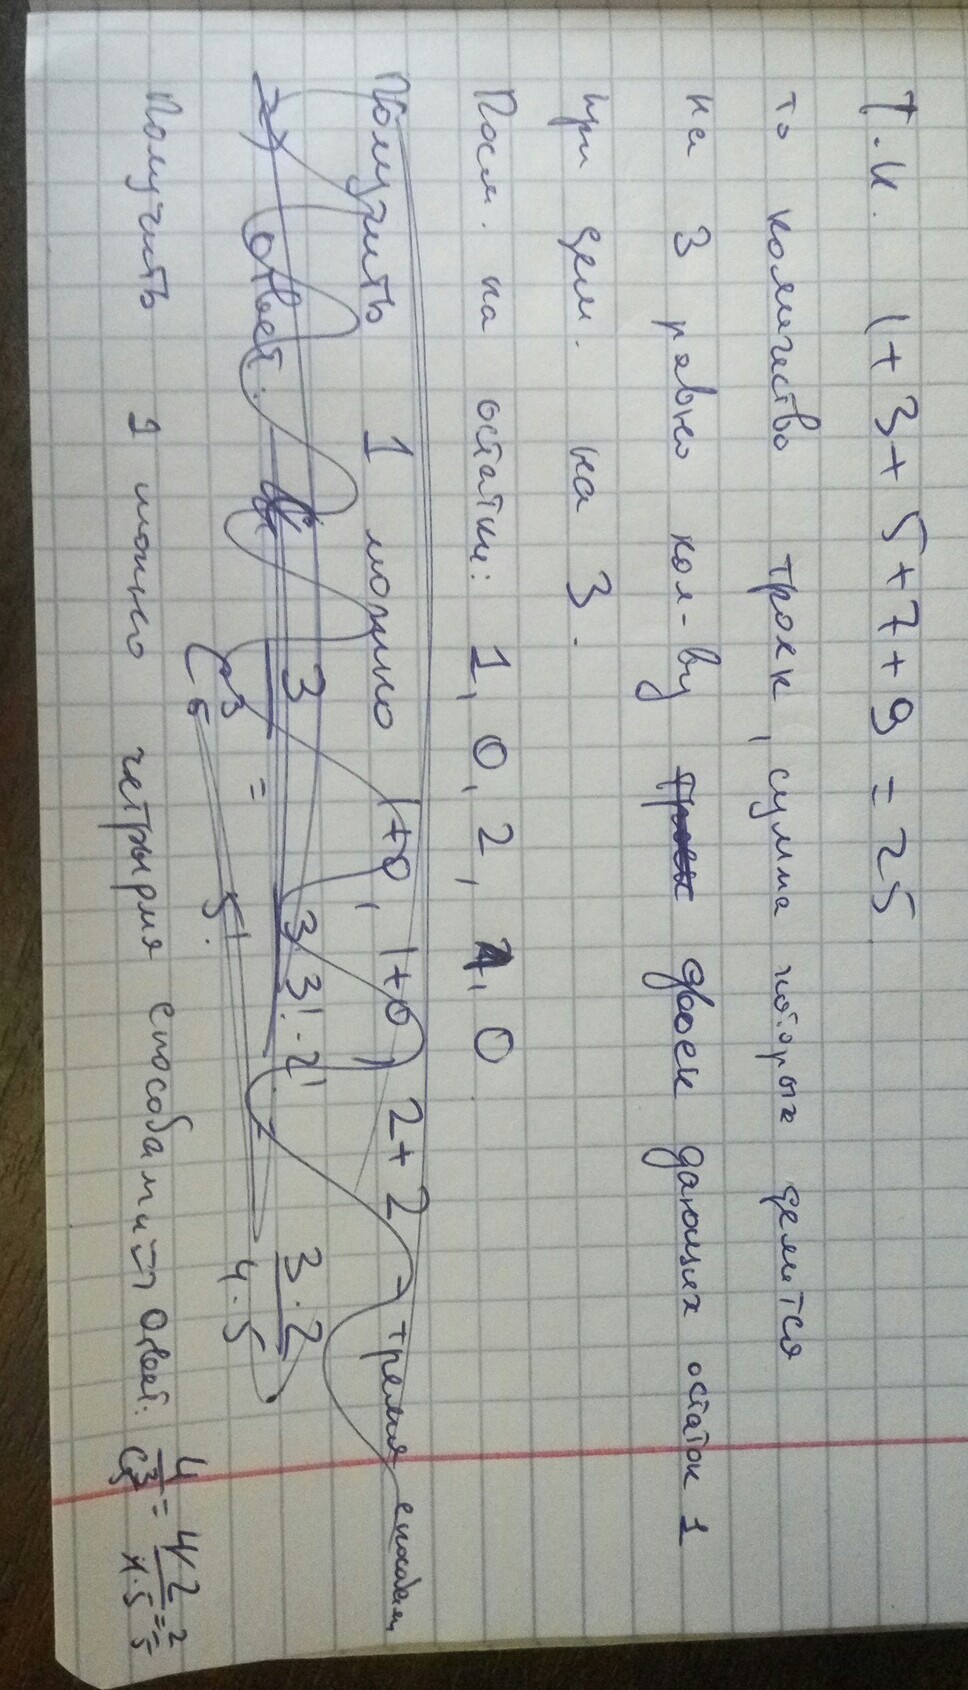 Т.к. 1+3+5+7+9 = 25
то количество троек, сумма которых делится
на 3 равно кол-ву двоек дающих остаток 1
при дел. на 3.
Посм. на остатки: 1, 0, 2, 1, 0
Получить 1 можно 1+0, 1+0, 2+2 тремя способам
Ответ:
3 3·3!·2! 3·2
C₅³ = 5! 4·5
Получить 1 можно четырмя способами => Ответ: 4/C₅³ = 4·2/4·5 = 2/5